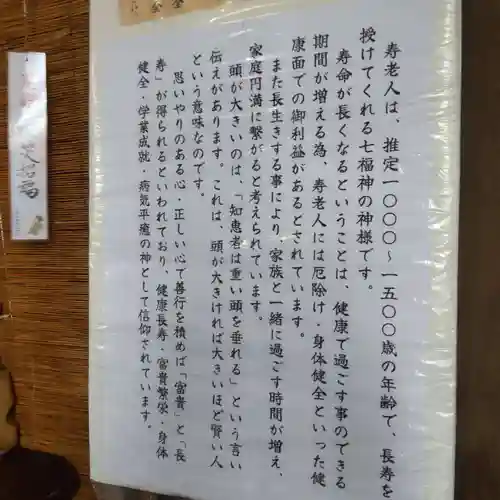 寿老人は、推定一〇〇〇～一五〇〇歳の年齢で、長寿を
授けてくれる七福神の神様です。
寿命が長くなるということは、健康で過ごす事のできる
期間が増える為、寿老人には厄除け・身体健全といった健
康面での御利益があるとされています。
また長生きする事により、家族と一緒に過ごす時間が増え、
家庭円満に繋がると考えられています。
頭が大きいのは、「知恵者は重い頭を垂れる」という言い
伝えがあります。これは、頭が大きければ大きいほど賢い人
という意味なのです。
思いやりのある心・正しい心で善行を積めば「富貴」と「長
寿」が得られるといわれており、健康長寿・富貴繁栄・身体
健全・学業成就・病気平癒の神として信仰されています。
笑招福